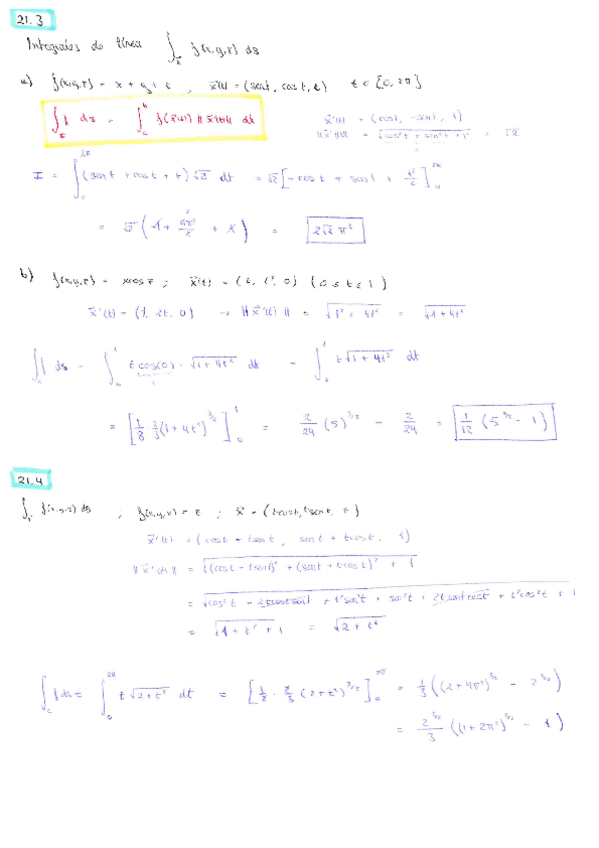 21.3
Integrales de línea ∫ f(x,y,z) ds
a) f(x,y,z) = x + y + z , x⃗(t) = (sent, cost, t) t ∈ [0, 2π]
∫ f ds = ∫ f(x⃗(t)) ||x⃗'(t)|| dt
x⃗'(t) = (cost, -sent, 1)
||x⃗'(t)|| = √(cos²t + sen²t + 1²) = √2
I = ∫₀^2π (sent + cost + t) √2 dt = √2 [-cost + sent + t²/2]₀^2π
= √2 (-1 + 4π²/2 + 1) = 2√2 π²
b) f(x,y,z) = xcosz ; x⃗(t) = (t, t², 0) (0 ≤ t ≤ 1)
x⃗'(t) = (1, 2t, 0) → ||x⃗'(t)|| = √(1² + 4t²) = √(1 + 4t²)
∫c f ds = ∫₀^1 t cos(0) · √(1 + 4t²) dt = ∫₀^1 t √(1 + 4t²) dt
= [1/8 · 2/3 (1 + 4t²)^3/2]₀^1 = 2/24 (5)^3/2 - 2/24 = 1/12 (5^3/2 - 1)
21.4
∫ f(x,y,z) ds , f(x,y,z) = z ; x⃗ = (tcost, tsent, t)
x⃗'(t) = (cost - tsent, sent + tcost, 1)
||x⃗'(t)|| = √((cost - tsent)² + (sent + tcost)² + 1)
= √(cos²t - 2tcostsent + t²sen²t + sen²t + 2tsentcost + t²cos²t + 1)
= √(1 + t² + 1) = √(2 + t²)
∫c f ds = ∫₀^2π t √(2 + t²) dt = [1/2 · 2/3 (2 + t²)^3/2]₀^2π = 1/3 ((2 + 4π²)^3/2 - 2^3/2)
= 2^3/2 / 3 ((1 + 2π²)^3/2 - 1)